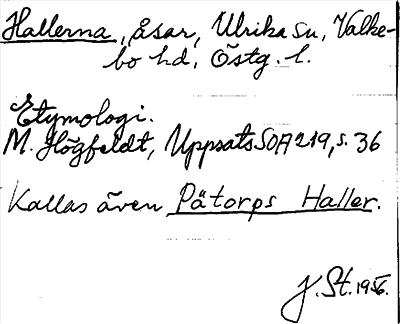 Hallerna, åsar, Ulrika sn, Valke-
bo hd, Östg. l.
Etymologi.
M. Högfeldt, Uppsats SOA 219, s. 36
Kallas även Pätorps Haller.
J. St. 1956.